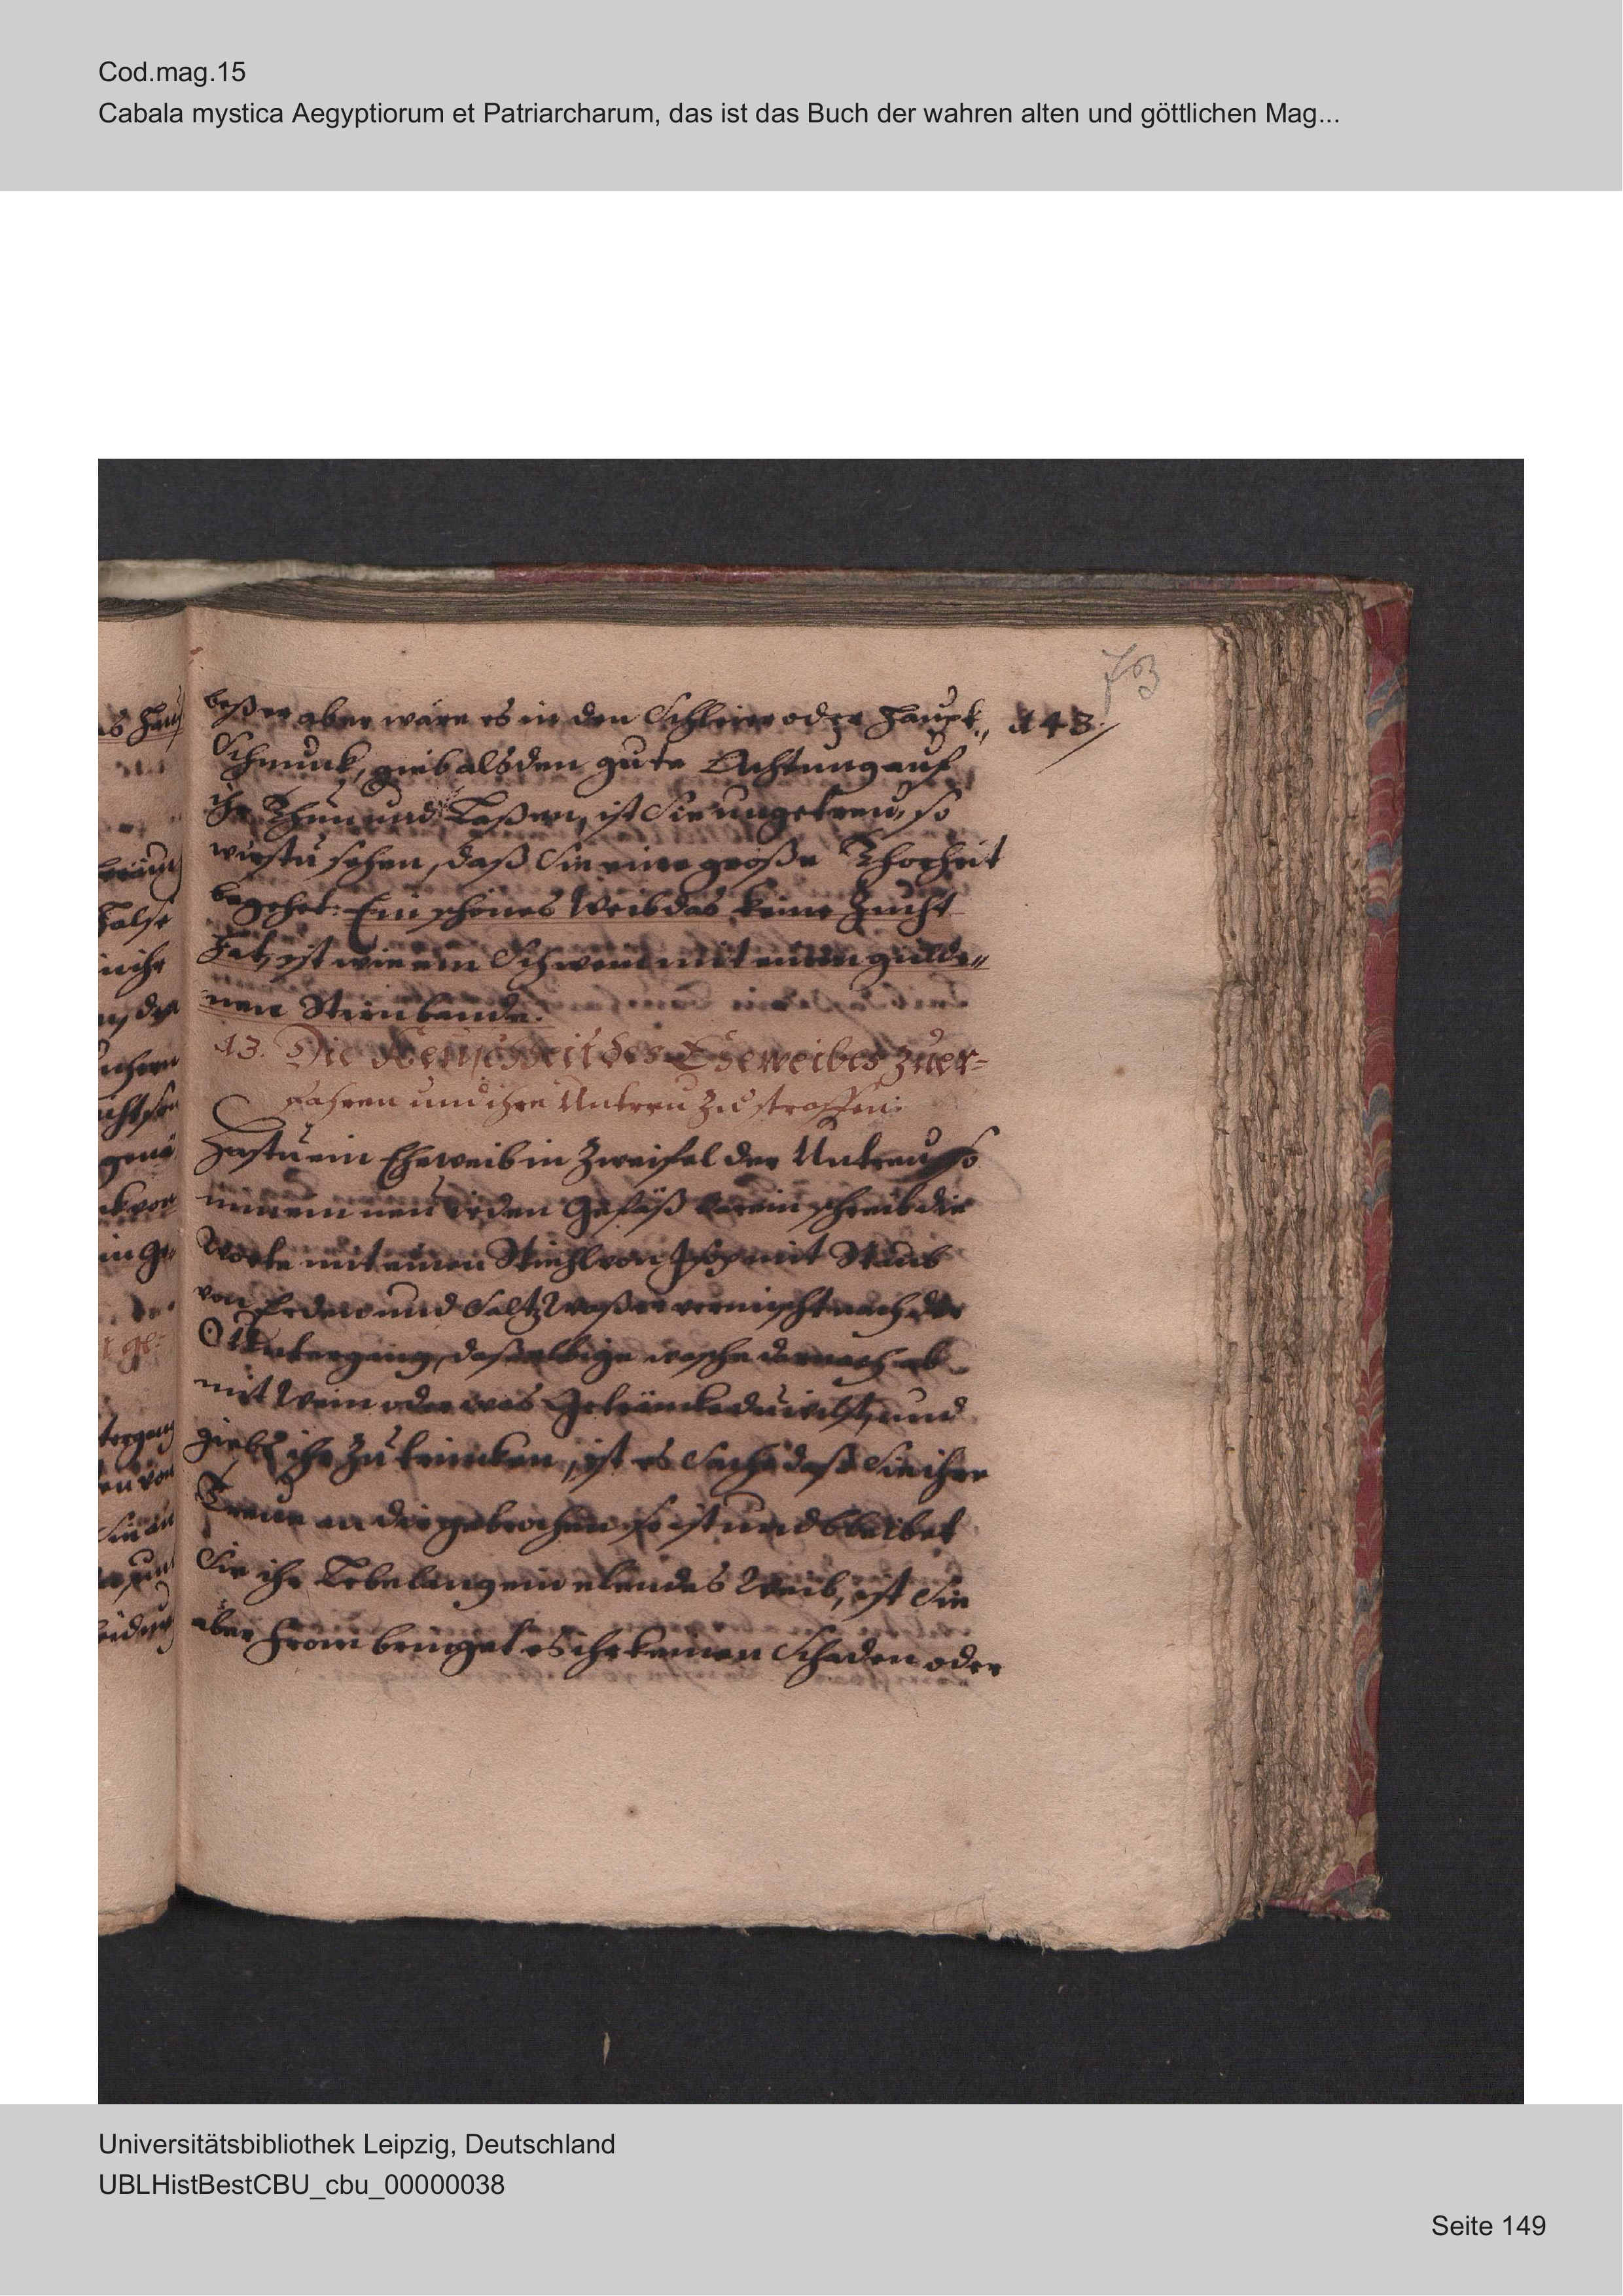 Cod.mag.15
Cabala mystica Aegyptiorum et Patriarcharum, das ist das Buch der wahren alten und göttlichen Mag...
73
beßer aber wäre es in den Schleier oder Haupt„ 143.
Schmuck, gieb alsden gute Achtung auf
ihr Thun und Laßen, ist Sie ungetreu, so
wirstu sehen, daß Sie eine große Thorheit
begehet: Ein schönes Weib das keine Zucht
hat, ist wie ein Schwein mit einem gulde„
nen Stirnbande.
13. Die Keuschheit des Eheweibes zuer-
fahren und ihre Untreu zu straffen.
Hastu ein Eheweib in Zweifel der Untreu, so
nim ein neu irden Gefäß darein schreib die
Worte mit einen Stiehl von Isop mit Staub
von Erden und Saltz Waßer vermischt nach der
☉ Untergang, daßelbige wasche darnach ab
mit Wein oder was Getränke du wilst, und
gieb ihr zu trincken, ist es Sache daß Sie ihre
Treue an dir gebrochen so ist und bleibet
Sie ihr Lebelang ein elendes Weib, ist Sie
aber From bringet es ihr keinen Schaden oder
Universitätsbibliothek Leipzig, Deutschland
UBLHistBestCBU_cbu_00000038
Seite 149